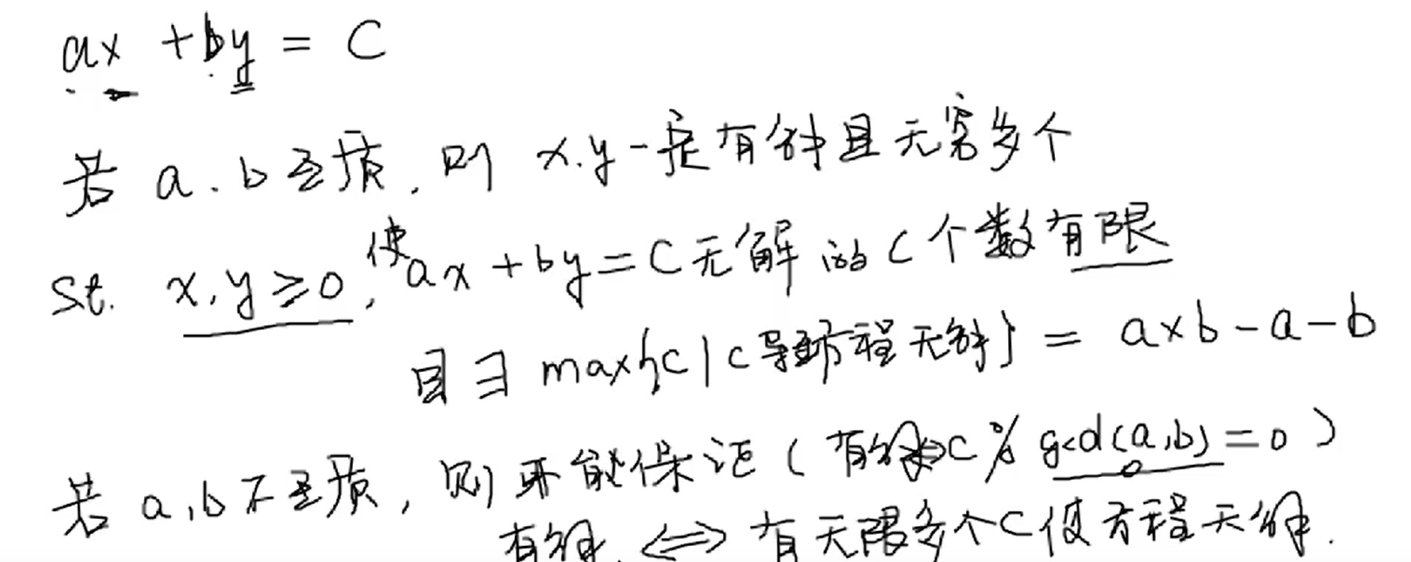 ax + by = C
若 a.b互质, 则 x.y一定有解且无穷多个
St. x,y≥0, 使ax+by=C无解的C个数有限
且∃ max{c|c导致方程无解} = a×b-a-b
若 a,b不互质, 则不能保证(有解⇔C % gcd(a,b)=0)
有解. ⇔ 有无限多个C使方程无解.